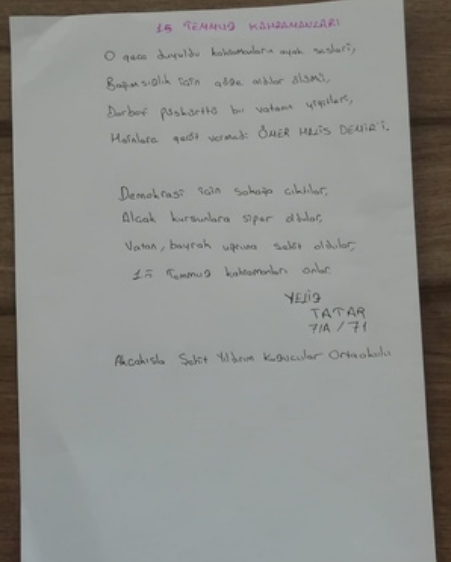 15 TEMMUZ KAHRAMANLARI
O gece duyuldu kahramanların ayak sesleri,
Bağımsızlık için göze aldılar ölümü,
Darbeyi püskürttü bir vatanın yiğitleri,
Hainlere geçit vermedi ÖMER HALİS DEMİR'İ.
Demokrasi için sokağa çıktılar,
Alçak kurşunlara siper oldular,
Vatan, bayrak uğruna şehit oldular,
15 Temmuz kahramanları onlar.
TATAR
7/A / 71
Akçakışla Şehit Yıldırım Ortaokulu